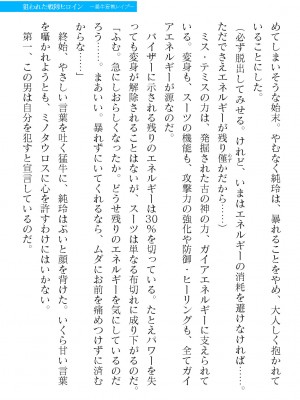 狙われた戦隊ヒロイン
めてしまいそうな始末。やむなく純玲は、暴れることをやめ、大人しく抱かれて
いることにした。
（必ず脱出してみせる。けれど、いまはエネルギーの消耗を避けなければ……。
ただでさえエネルギーが残り僅かだから……）
ミス・テミスの力は、発掘された古の神の力、ガイアエネルギーに支えられて
いる。変身も、スーツの機能も、攻撃力の強化や防御・ヒーリングも、全てガイ
アエネルギーが源なのだ。
バイザーに示される残りのエネルギーは30％を切っている。たとえパワーを失
っても変身が解除されることはないが、スーツは単なる布切れに成り下がるのだ。
「ふむ。急にしおらしくなったか。どうせ残りのエネルギーを気にしているのだ
ろう……。まあいい。暴れずにいてくれるなら、ムダにお前を痛めつけずに済む
からな……」
終始、やさしい言葉を吐く猛牛に、純玲はぷいと顔を背けた。いくら甘い言葉
を囁かれようとも、ミノタウロスに心を許すわけにはいかない。
第一、この男は自分を犯すと宣言しているのだ。